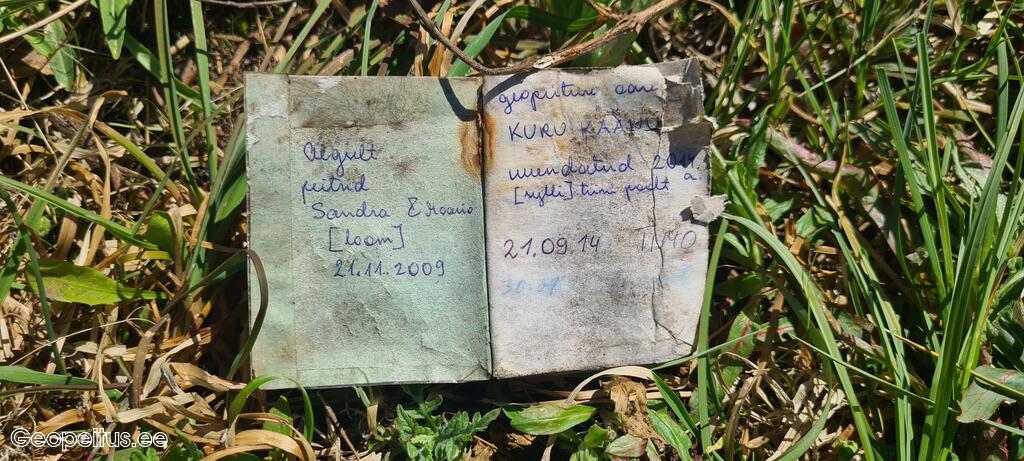 Algult
peitnd
Sandra & Maario
[loom]
21.11.2009
geopeituse aare
KURU KAANU
uuendatud 2014.
[sylli] tiimi poolt a
21.09.14
30.07
Geopeitus.ee